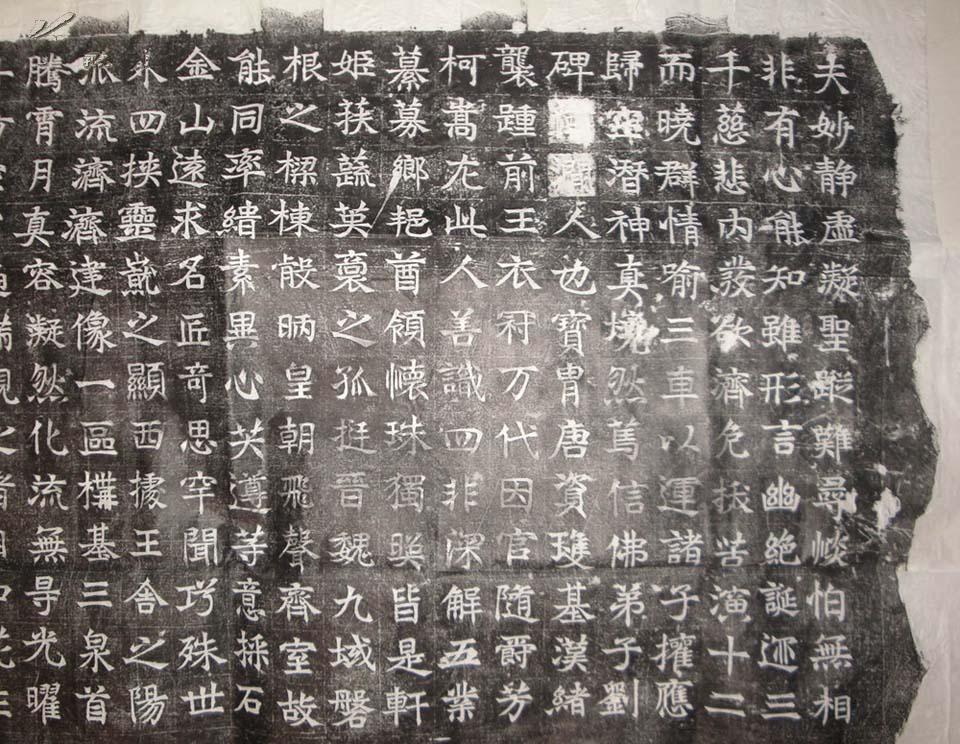 夫妙静虛凝聖蹤難尋惔怕無相
非有心能知雖形言幽絶誕迹三
千慈悲内發欲濟危拔苦演十二
而曉群情喻三車以運諸子擢應
歸空潛神真境然萬信佛弟子劉
碑 人也寶胄唐資琟基漢緒
襲踵前王衣冠万代因官隨爵芳
柯嵩尤此人善識四非深解五業
纂募鄉邑酋領懷珠獨照皆是軒
姬萩蔬英裹之孤挺晉魏九域磐
根之樑棟骰昞皇朝飛聲齊室故
能同率繢素異心共遵等意採石
金山遠求名匠奇思罕聞巧殊世
外四挾靈嶽之顯西據王舍之陽
派流濟濟建像一區構基三泉首
騰霄月真容凝然化流無㝵光曜